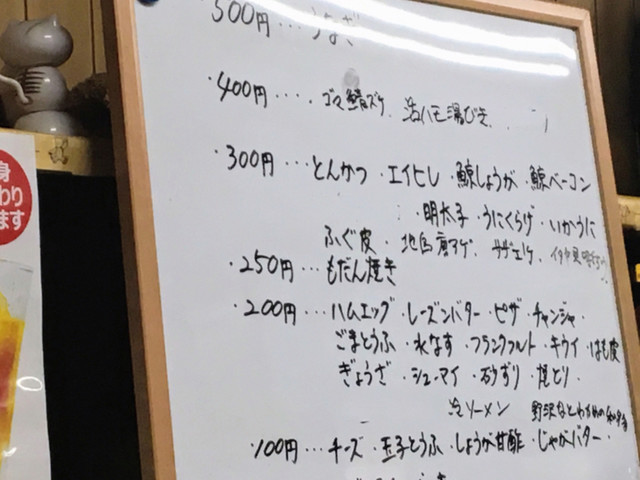 500円…うなぎ
・400円‥‥ゴマ鯖ズケ.活ハモ湯びき.
・300円…とんかつ・エイヒレ・鯨しょうが・鯨ベーコン
・明太子・うにくらげ・いかうに
ふぐ皮・地鳥唐アゲ・サザエツケ・
・250円…もだん焼き
・200円…ハムエッグ・レーズンバター・ピザ・チャンジャ・
ごまとうふ・水なす・フランクフルト・キウイ・はも皮
ぎょうざ・シューマイ・砂ずり・焼とり・
冷ソーメン 野沢なとわかめの
・100円…チーズ・玉子とうふ・しょうが甘酢・じゃがバター・
身
わり
ます